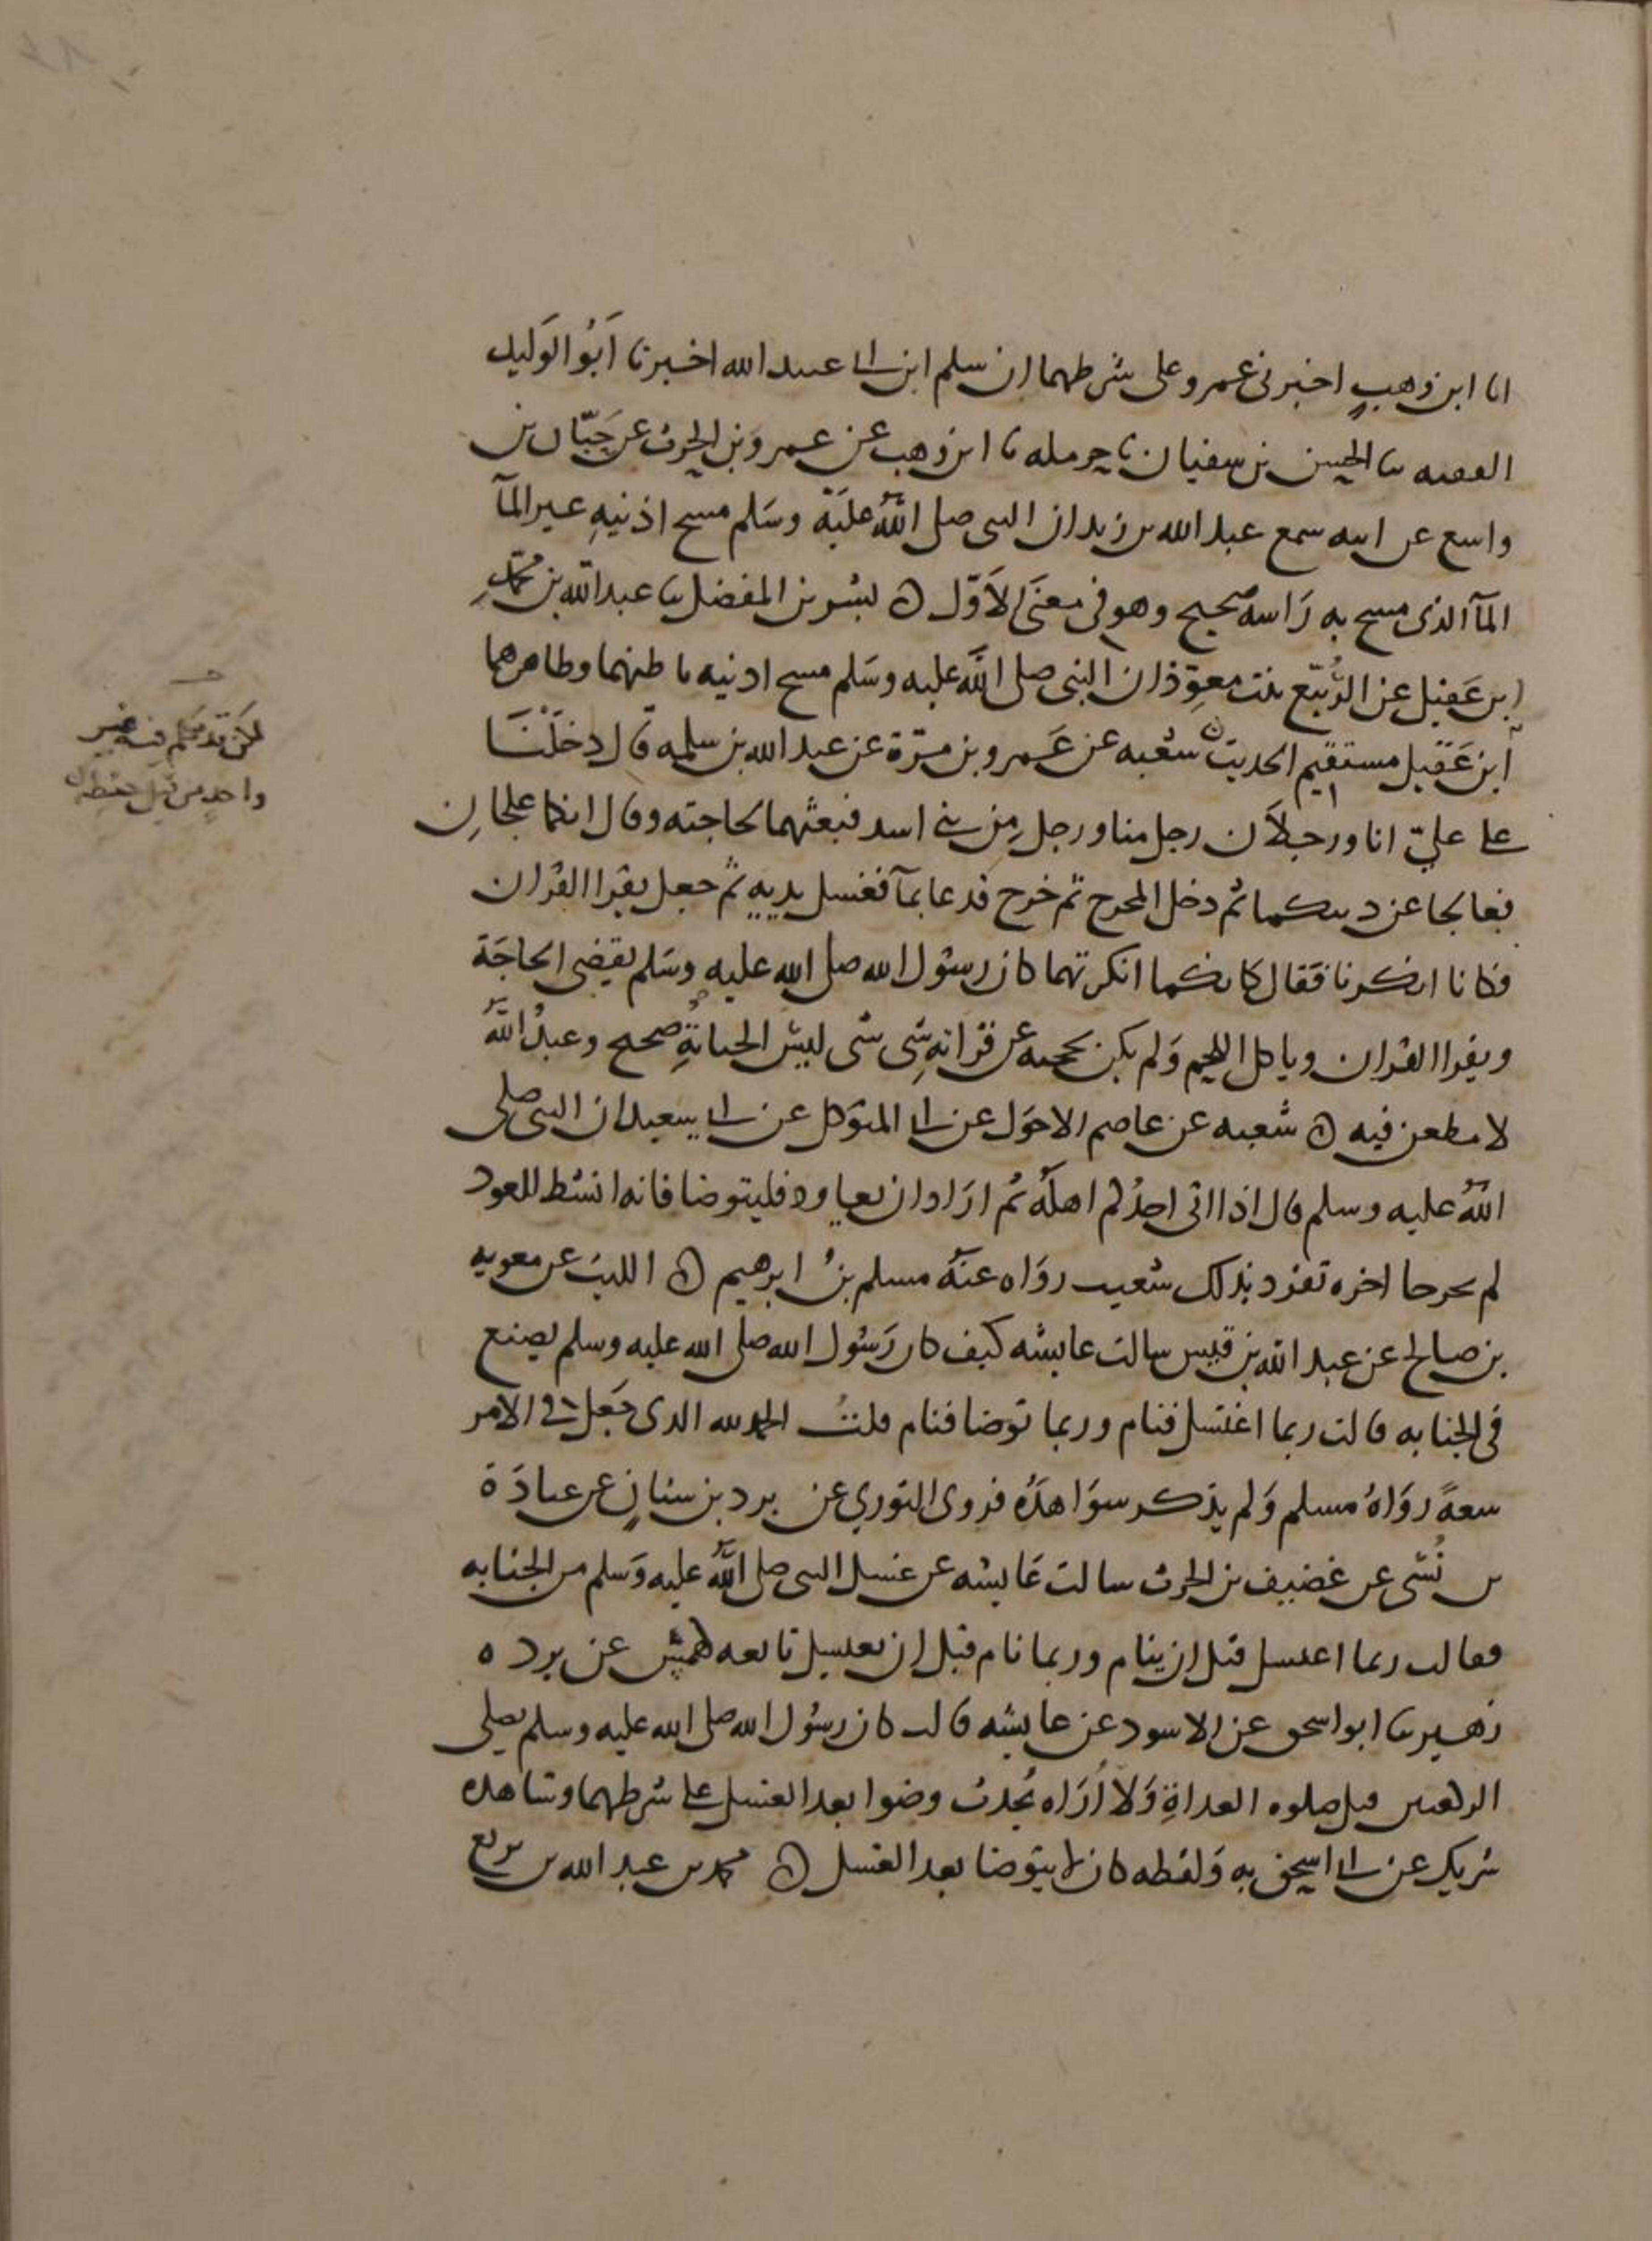 انا ابن وهب اخبرنى عمرو على شرطهما ان سلم ابن ابى عبيد الله اخبرنا ابو الوليد
الفقيه ثنا الحسن بن سفيان ثنا حرمله ثنا ابن وهب عن عمرو بن الحرث عن حبان بن
واسع عن ابيه سمع عبد الله بن زيد ان النبى صلى الله عليه وسلم مسح اذنيه غير المآ
المآ الذى مسح به راسه صحيح وهو فى معنى الاول ه بشر بن المفضل ثنا عبد الله بن محمد
ابن عقيل عن الربيع بنت معوذ ان النبى صلى الله عليه وسلم مسح اذنيه باطنهما وظاهرهما
ابن عقيل مستقيم الحديث ه شعبه عن عمرو بن مرة عن عبد الله بن سلمه قال دخلنا
على علي انا ورجلان رجل منا ورجل من بنى اسد فبعثهما لحاجته وقال انكما علجان
فعالجا عن دينكما ثم دخل المخرج ثم خرج فدعا بمآ فغسل يديه ثم جعل يقرا القران
فكانا انكرنا فقال كانكما انكرتما كان رسول الله صلى الله عليه وسلم يقضى الحاجة
ويقرا القران وياكل اللحم ولم يكن يحجبه عن قراته شى ليس الجنابة صحيح وعبد الله
لا مطعن فيه ه شعبه عن عاصم الاحول عن ابى المتوكل عن ابى سعيد ان النبى صلى
الله عليه وسلم قال اذا اتى احدكم اهله ثم اراد ان يعاود فليتوضا فانه انشط للعود
لم يخرجا اخره تفرد بذلك شعبه رواه عنه مسلم بن ابرهيم ه الليث عن معويه
بن صالح عن عبد الله بن قيس سالت عايشه كيف كان رسول الله صلى الله عليه وسلم يصنع
فى الجنابه قالت ربما اغتسل فنام وربما توضا فنام قلت الحمد لله الذى جعل فى الامر
سعة رواه مسلم ولم يذكر شواهده فروى الثوري عن برد بن سنان عن عبادة
بن نسى عن غضيف بن الحرث سالت عايشه عن غسل النبى صلى الله عليه وسلم من الجنابه
فقالت ربما اغتسل قبل ان ينام وربما نام قبل ان يغتسل تابعه كهمس عن برد ه
زهير ثنا ابو اسحق عن الاسود عن عايشه قالت كان رسول الله صلى الله عليه وسلم يصلى
الركعتين قبل صلوه الغداة ولا اراه يحدث وضوا بعد الغسل على شرطهما وشاهده
شريك عن ابى اسحق به ولفظه كان لا يتوضا بعد الغسل ه محمد بن عبد الله بن بزيع
لكن قد تكلم فيه غير
واحد من قبل حفظه